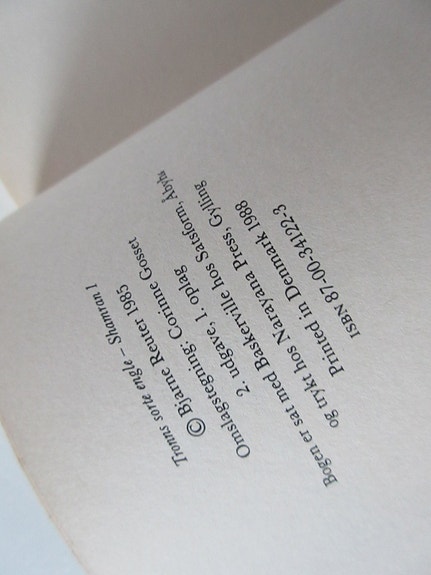 Tronns sorte engle – Shamran 1
© Bjarne Reuter 1985
Omslagstegning, Corinne Gosset
2. udgave, 1. oplag
Bogen er sat med Baskerville hos Satsform, Åbyhø
og trykt hos Narayana Press, Gylling
Printed in Denmark 1988
ISBN 87-00-34122-3